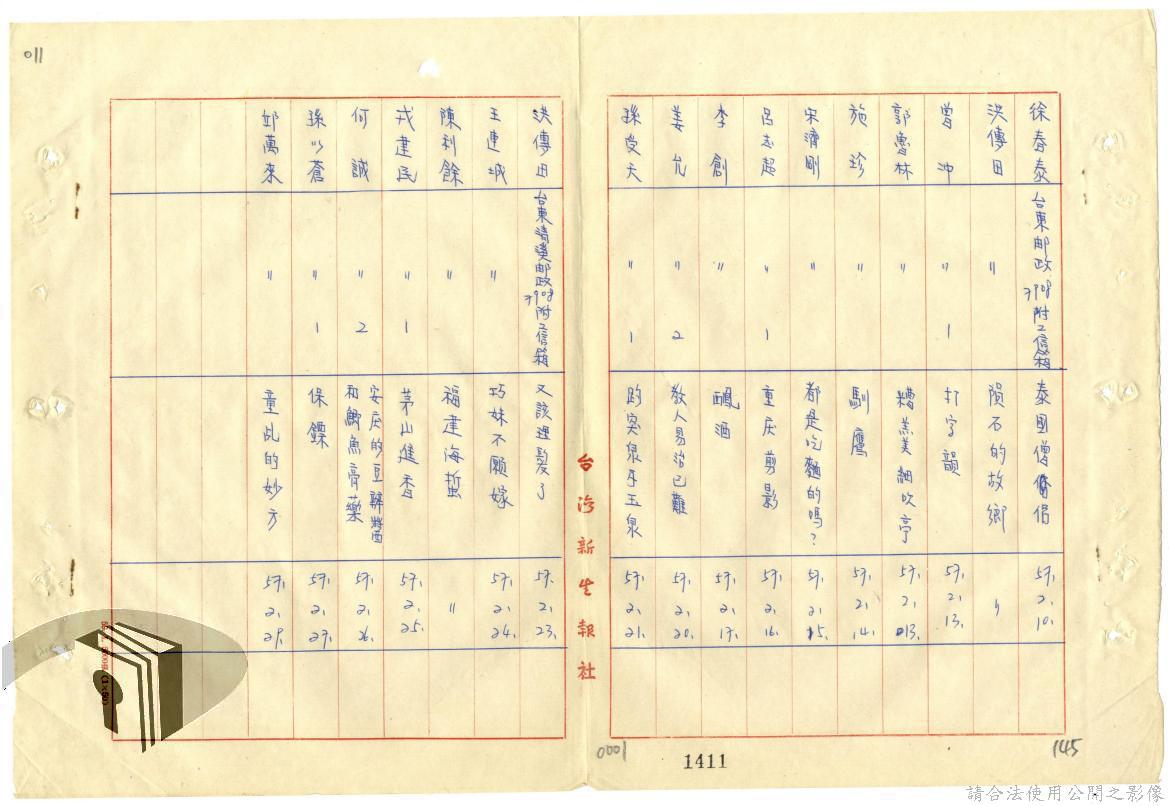 011
徐春泰 台東郵政7908附2信箱 泰國僧侶 57. 2. 10.
洪傳田 〃 隕石的故鄉 〃
曾沖 〃 1 打字韻 57. 2. 13.
郭魯林 〃 糟羔美細吹亭 57. 2. 13.
施珍 〃 馴鷹 57. 2. 14.
宋濟剛 〃 都是吃麵的嗎? 57. 2. 15.
呂志超 〃 1 重庆剪影 57. 2. 16.
李創 〃 酒 57. 2. 17.
姜允 〃 2 教人易治已難 57. 2. 20.
孫受天 〃 1 趵突泉与玉泉 57. 2. 21.
台灣新生報社
洪傳田 台東清溪郵政7908附2信箱 又該理髮了 57. 2. 23.
王連城 〃 巧妹不願嫁 57. 2. 24.
陳利餘 〃 福建海蜇 〃
戎建民 〃 1 茅山進香 57. 2. 25.
何誠 〃 2 安庆的豆瓣醬和鯽魚膏藥 57. 2. 26.
孫以蒼 〃 1 保鏢 57. 2. 27.
邱萬來 〃 童乩的妙方 57. 2. 29.
(1×50)
0001
1411
145
請合法使用公開之影像